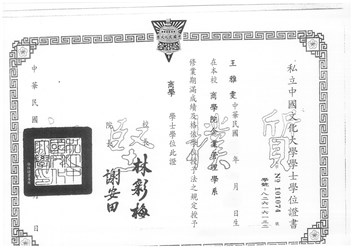 私立中國文化大學學士學位證書
Nº 101074
王雅雯 中華民國 年 月 日生
在本校 商學院企業管理學系
修業期滿成績及格依學位授予法之規定授予
商學 學士學位此證
校長 林彩梅
院長 謝安田
中華民國 年 月 日